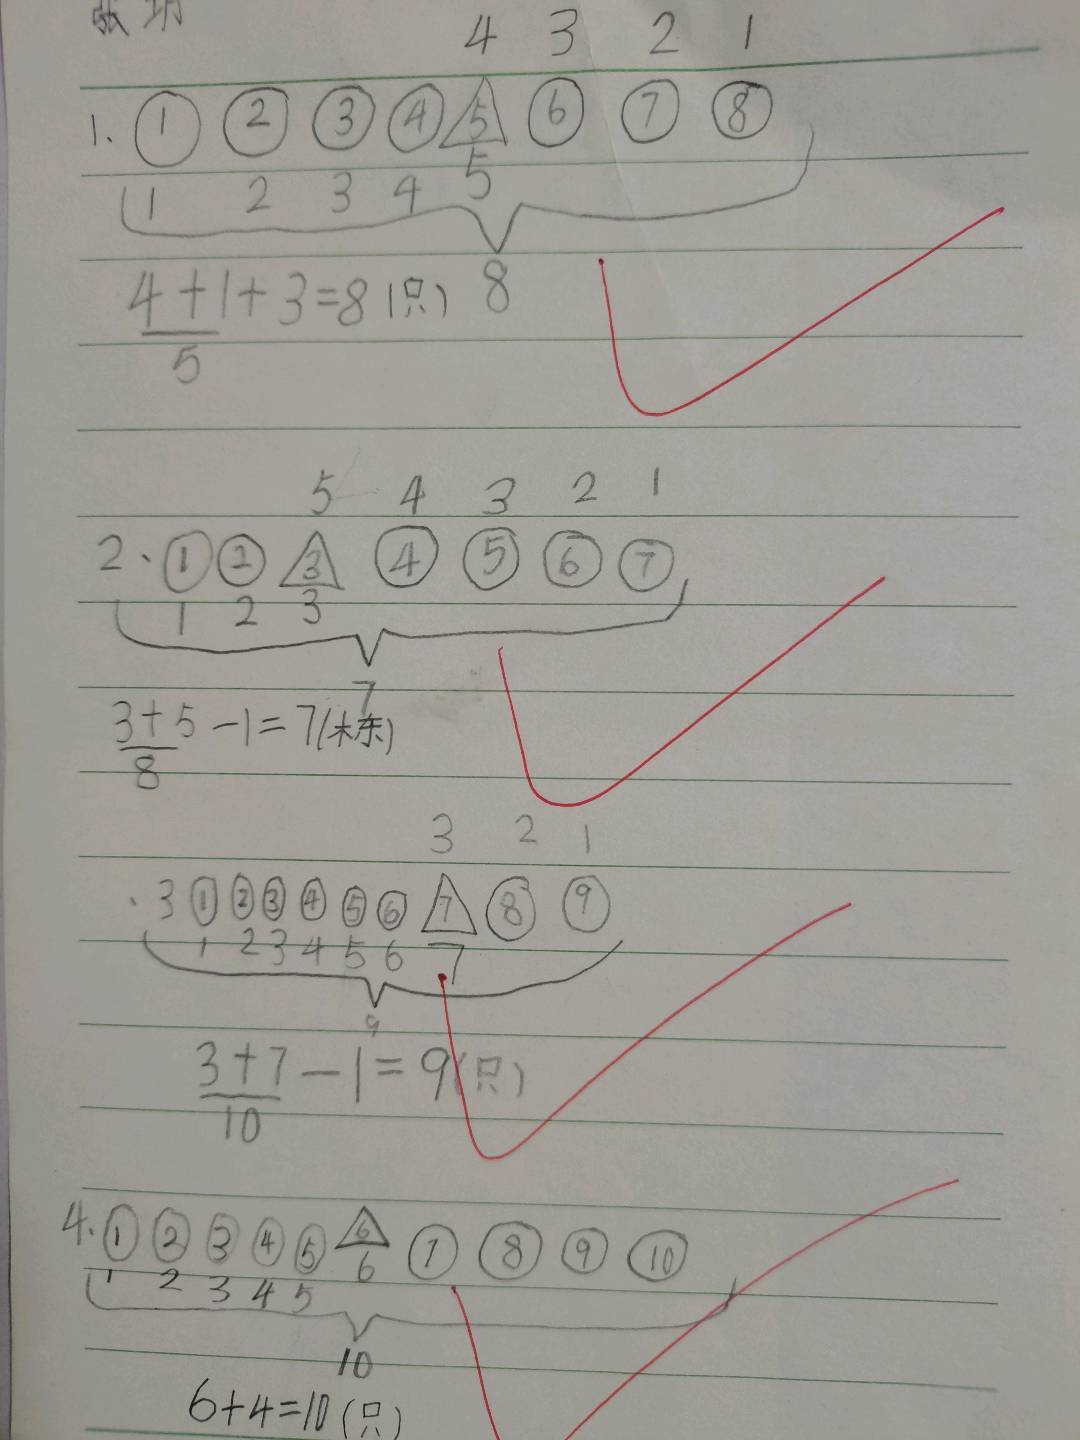 4 3 2 1
1. ① ② ③ ④ 5 ⑥ ⑦ ⑧
1 2 3 4 5
8
4+1+3=8(只)
5
5 4 3 2 1
2. ① ② 3 ④ ⑤ ⑥ ⑦
1 2 3
7
3+5-1=7(栋)
8
3 2 1
.3 ① ② ③ ④ ⑤ ⑥ 7 ⑧ ⑨
1 2 3 4 5 6 7
9
3+7-1=9(只)
10
4. ① ② ③ ④ ⑤ 6 ⑦ ⑧ ⑨ ⑩
1 2 3 4 5 6
10
6+4=10(只)